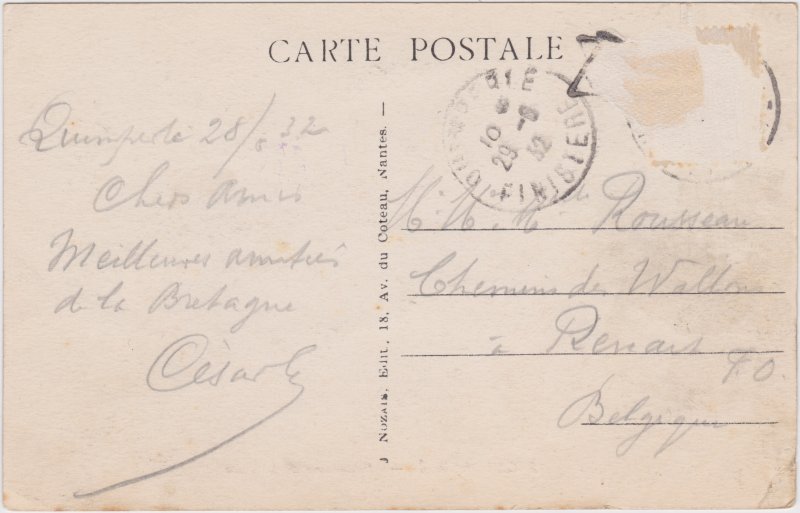 CARTE POSTALE
Quimperlé 28/8 32
Chers amis
Meilleures amitiés
de la Bretagne
César
J NOZAIS, Edit., 18, Av. du Coteau, Nantes. —
QUIMPERLÉ
10
29 - 8
32
FINISTERE
M. M. Rousseau
Chemin des Wallons
à Renaix
Belgique